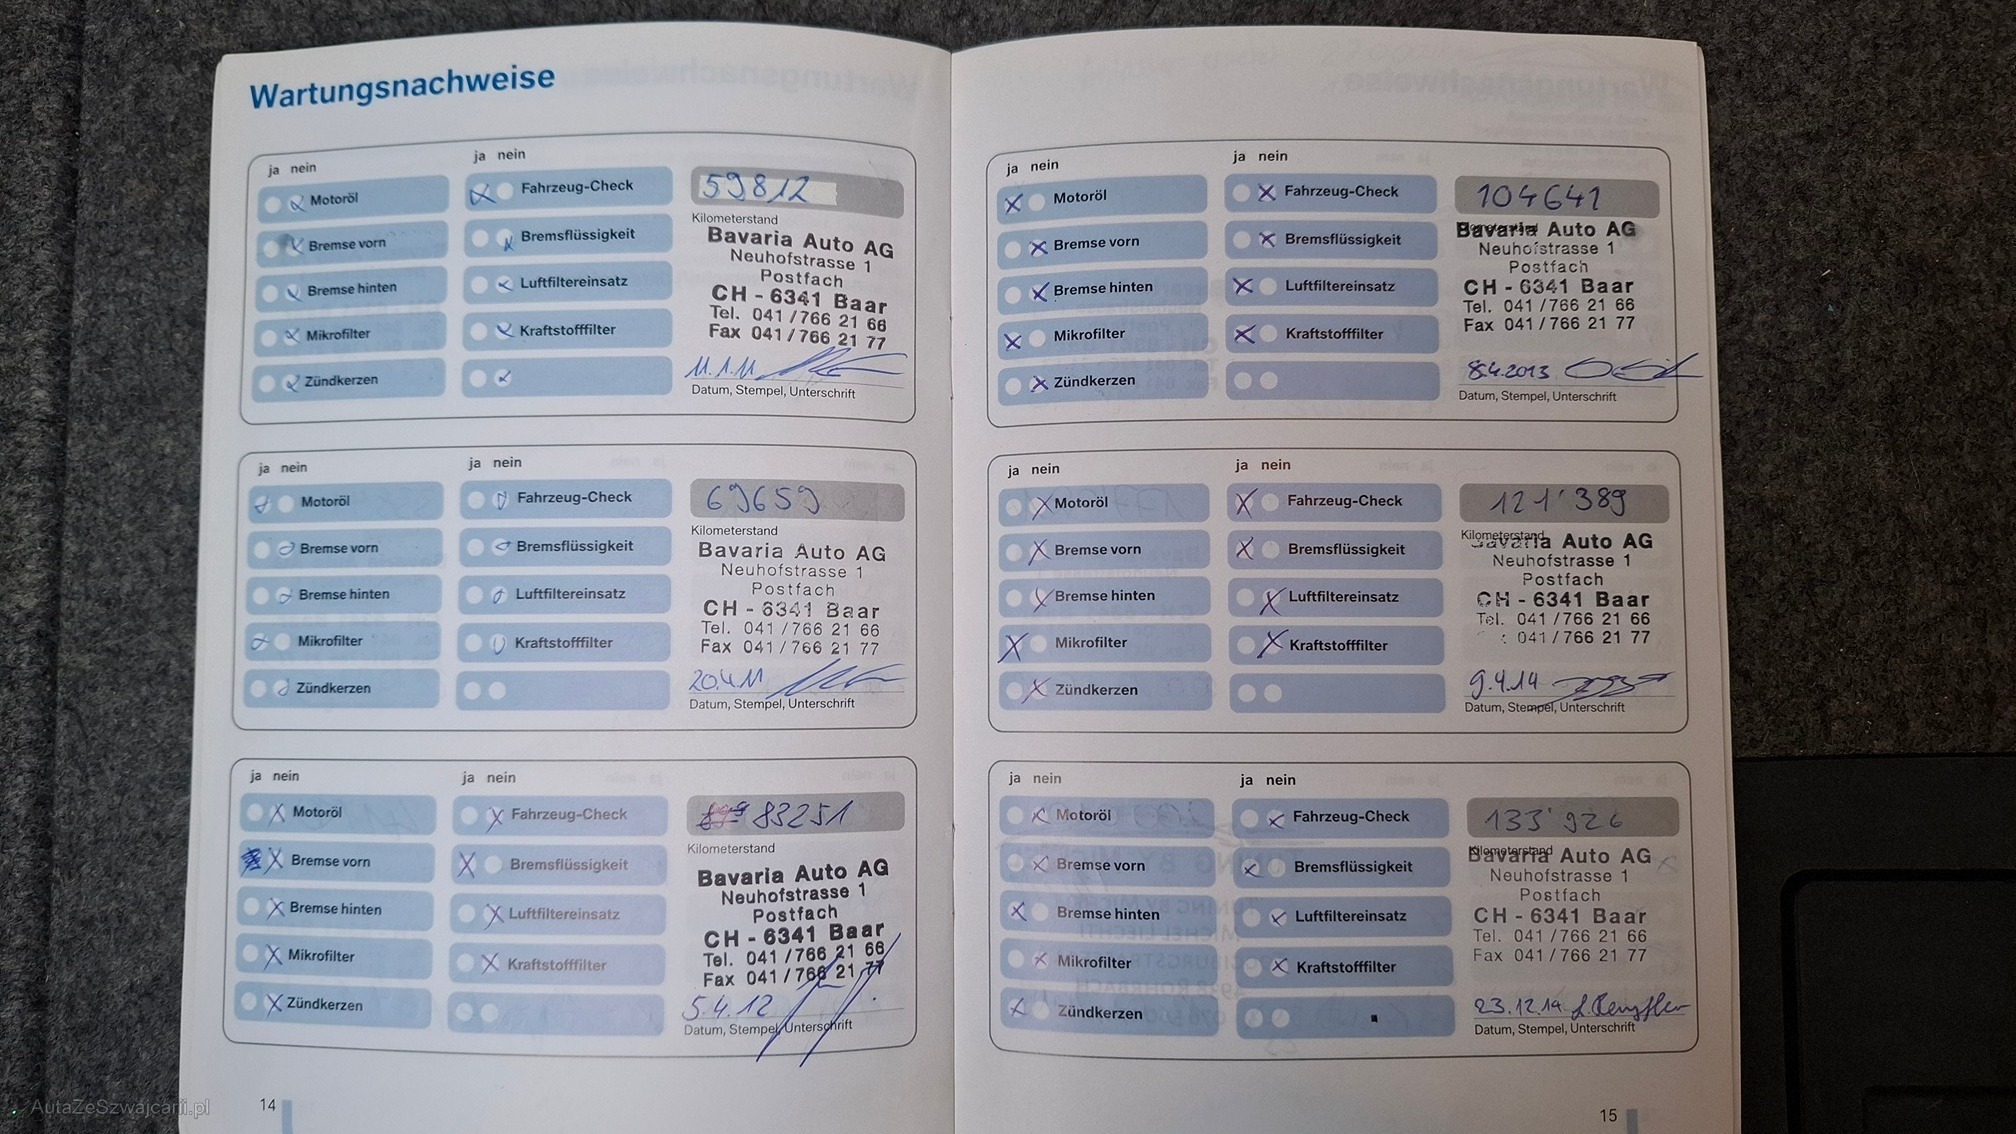 Wartungsnachweise
ja nein
Motoröl
Bremse vorn
Bremse hinten
Mikrofilter
Zündkerzen
ja nein
Fahrzeug-Check
Bremsflüssigkeit
Luftfiltereinsatz
Kraftstofffilter
59812
Kilometerstand
Bavaria Auto AG
Neuhofstrasse 1
Postfach
CH - 6341 Baar
Tel. 041/766 21 66
Fax 041/766 21 77
11.1.11
Datum, Stempel, Unterschrift
ja nein
Motoröl
Bremse vorn
Bremse hinten
Mikrofilter
Zündkerzen
ja nein
Fahrzeug-Check
Bremsflüssigkeit
Luftfiltereinsatz
Kraftstofffilter
69659
Kilometerstand
Bavaria Auto AG
Neuhofstrasse 1
Postfach
CH - 6341 Baar
Tel. 041/766 21 66
Fax 041/766 21 77
20.4.11
Datum, Stempel, Unterschrift
ja nein
Motoröl
Bremse vorn
Bremse hinten
Mikrofilter
Zündkerzen
ja nein
Fahrzeug-Check
Bremsflüssigkeit
Luftfiltereinsatz
Kraftstofffilter
83251
Kilometerstand
Bavaria Auto AG
Neuhofstrasse 1
Postfach
CH - 6341 Baar
Tel. 041/766 21 66
Fax 041/766 21 77
5.4.12
Datum, Stempel, Unterschrift
14
ja nein
Motoröl
Bremse vorn
Bremse hinten
Mikrofilter
Zündkerzen
ja nein
Fahrzeug-Check
Bremsflüssigkeit
Luftfiltereinsatz
Kraftstofffilter
104641
Kilometerstand
Bavaria Auto AG
Neuhofstrasse 1
Postfach
CH - 6341 Baar
Tel. 041/766 21 66
Fax 041/766 21 77
8.4.2013
Datum, Stempel, Unterschrift
ja nein
Motoröl
Bremse vorn
Bremse hinten
Mikrofilter
Zündkerzen
ja nein
Fahrzeug-Check
Bremsflüssigkeit
Luftfiltereinsatz
Kraftstofffilter
121'389
Kilometerstand
Bavaria Auto AG
Neuhofstrasse 1
Postfach
CH - 6341 Baar
Tel. 041/766 21 66
041/766 21 77
9.4.14
Datum, Stempel, Unterschrift
ja nein
Motoröl
Bremse vorn
Bremse hinten
Mikrofilter
Zündkerzen
ja nein
Fahrzeug-Check
Bremsflüssigkeit
Luftfiltereinsatz
Kraftstofffilter
133'926
Kilometerstand
Bavaria Auto AG
Neuhofstrasse 1
Postfach
CH - 6341 Baar
Tel. 041/766 21 66
Fax 041/766 21 77
23.12.14
Datum, Stempel, Unterschrift
15
AutaZeSzwajcarii.pl